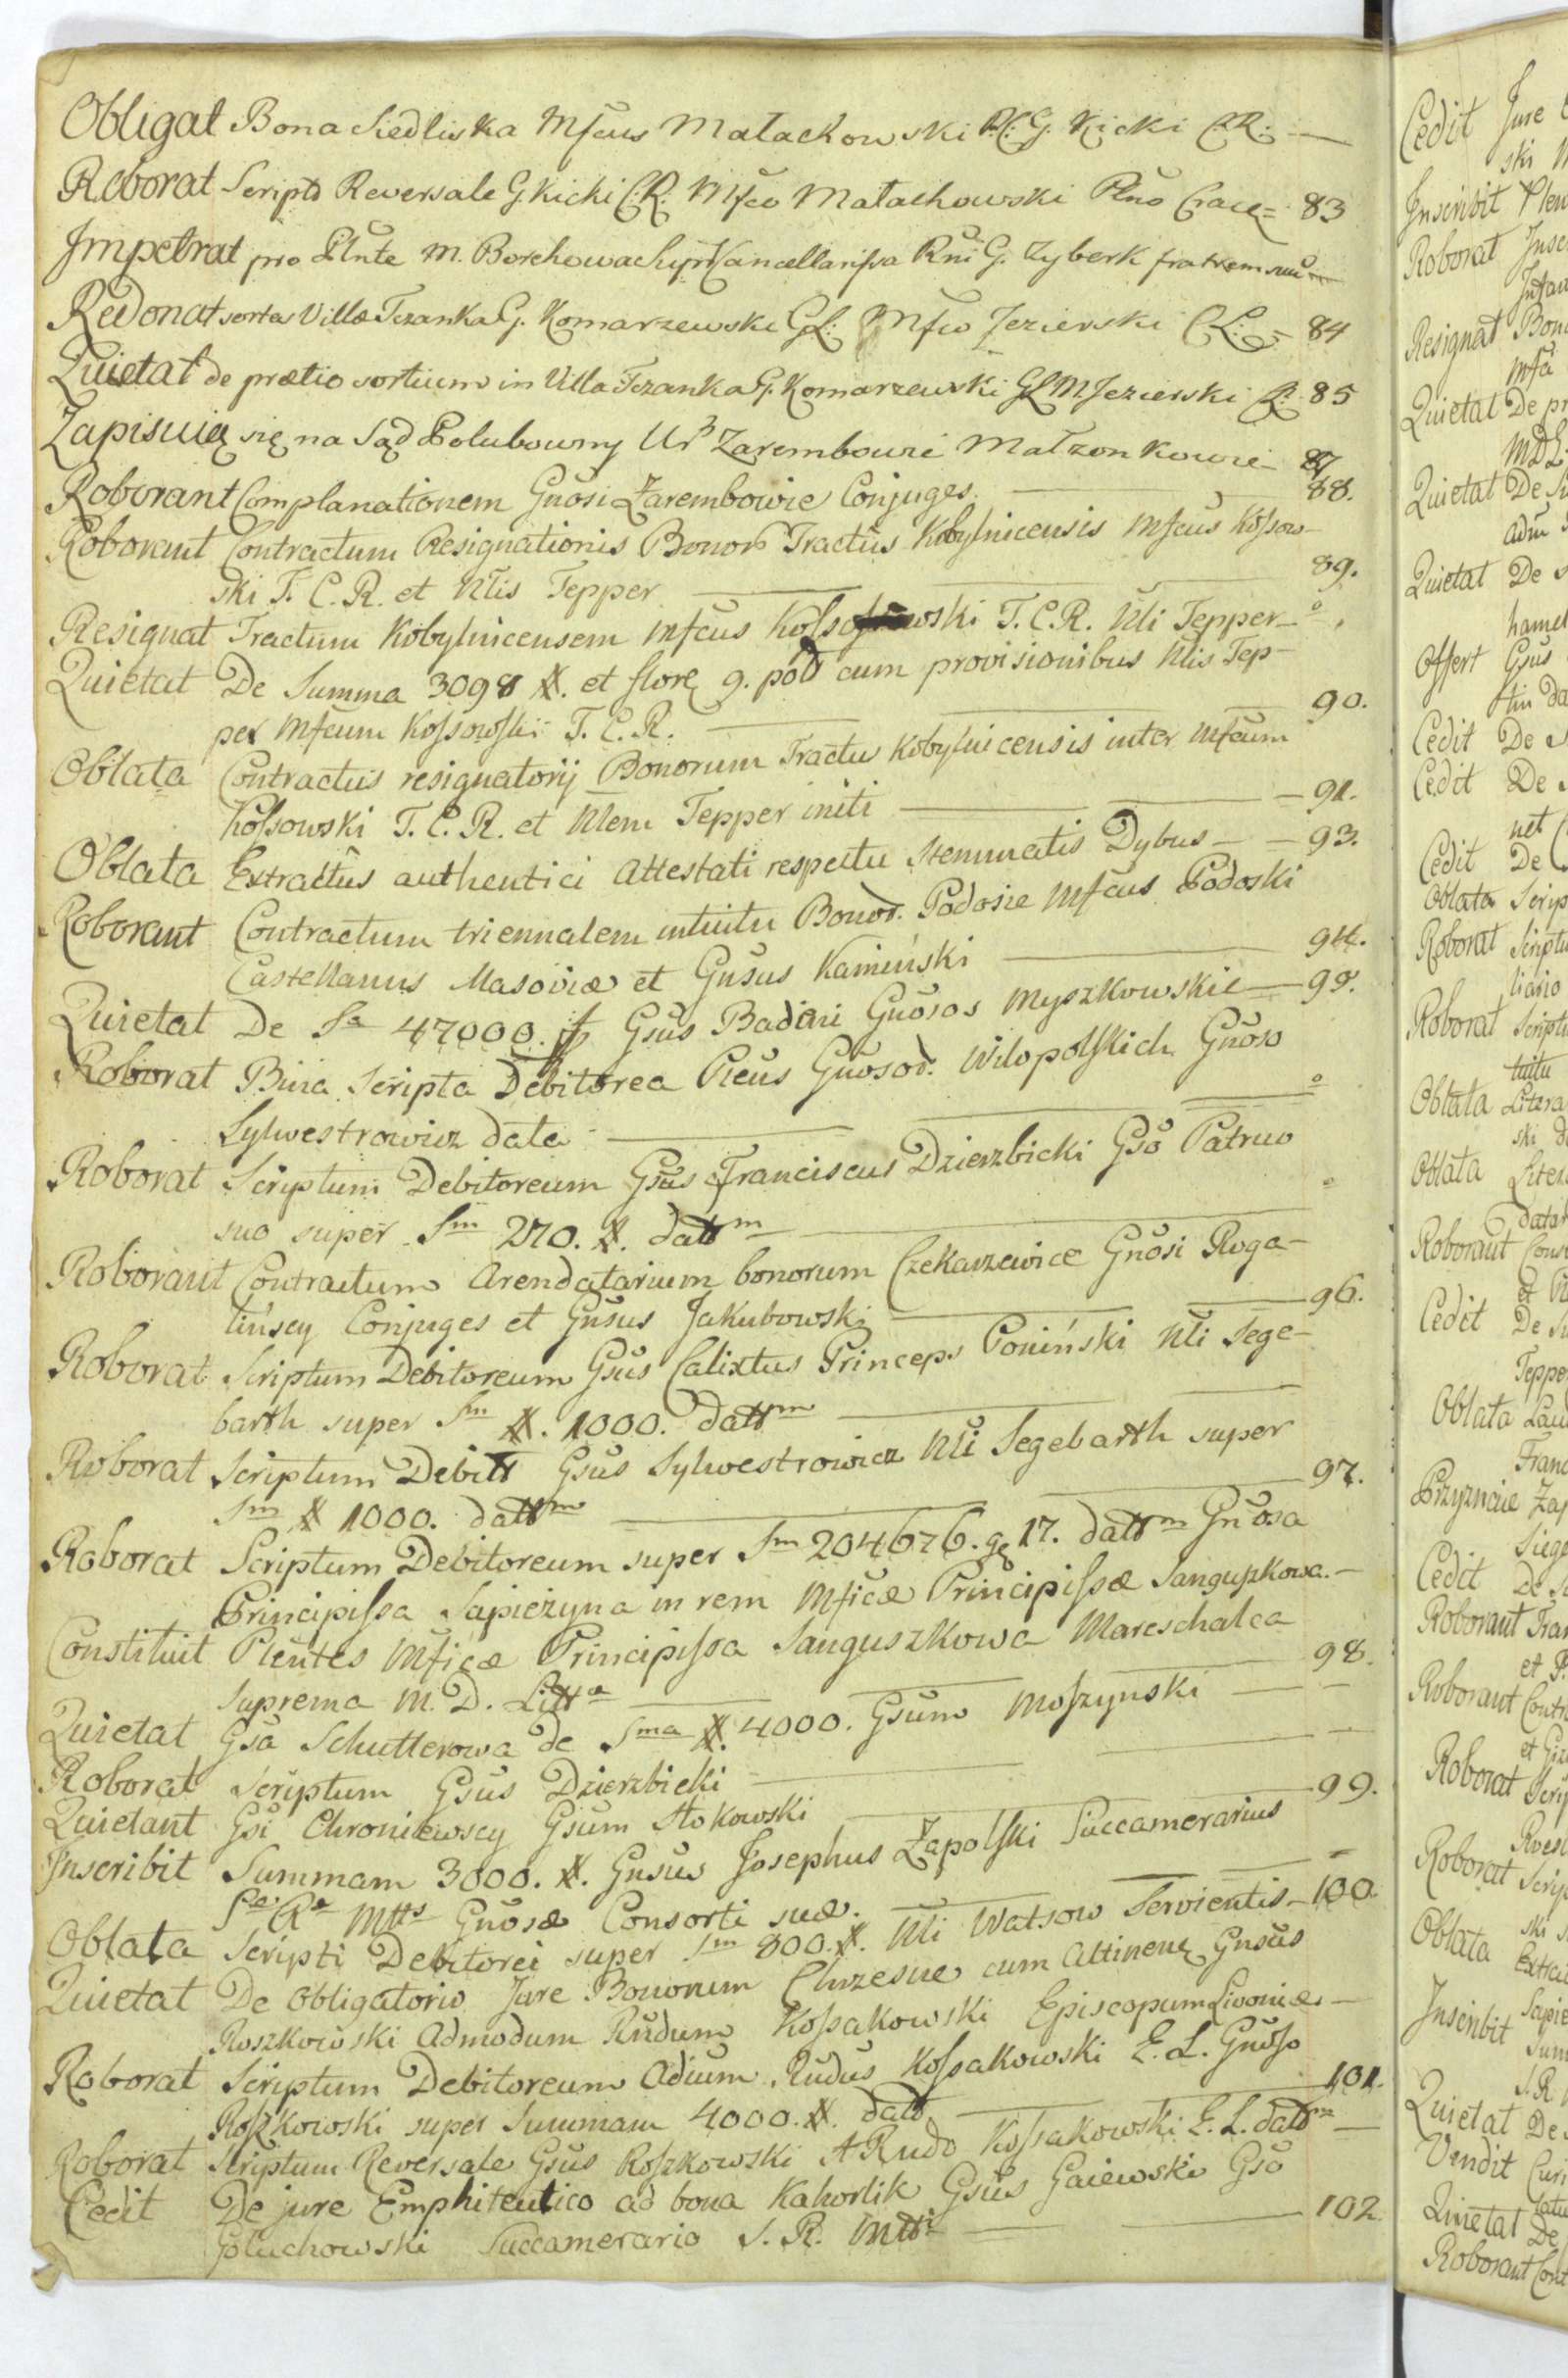 Obligat Bona Siedliska Mfcus Małachowski R.C. G. Kicki C.R. —
Roborat Scripto Reversale G. Kicki C.R. Mfco Małachowski Plno Crace = 83
Impetrat pro Plnte M. Borchowa Cancellarissa Rni G. Zyberk fratrem suu
Redonat sortes Villæ Tczanka G. Komarzewski GL: Mfco Jezierski C.L. = 84
Quietat de prætio sortium in Villa Tczanka G. Komarzewski GL M. Jezierski CL: 85
Zapisuią się na Sąd Polubowny Ur Zarembowie Małzonkowie - 87
Roborant Complanationem Gnosi Zarembowie Conjuges — 88.
Roborant Contractum Resignationis Bonor Tractus Kobylnicensis Mfcus Kossow-
ski T. C. R. et Nlis Tepper — 89.
Resignat Tractum Kobylnicensem Mfcus Kossowski T. C. R. Nli Tepper -
Quietat De Summa 3098 #. et flore 9. pol cum provisionibus Nlis Tep-
per Mfcum Kossowski T. C. R. — 90.
Oblata Contractus resignatorij Bonorum Tractus Kobylnicensis inter Mfcum
Kossowski T. C. R. et Nlem Tepper initi — 91.
Oblata Extractus authentici Attestati respectu Stemmatis Dybus — 93.
Roborant Contractum triennalem intuitu Bonor. Podosie Mfcus Podoski
Castellanus Masoviæ et Gnsus Kamiński — 94.
Quietat De Sa 47000. f Gsus Badeni Gnosos Myszkowskie — 95.
Roborat Bina Scripta Debitorea Plens Gnosor. Wilopolskich Gnoso
Sylwestrowicz data —
Roborat Scriptum Debitoreum Gsus Franciscus Dzierzbicki Gso Patruo
suo super Sm 270. #. dattm —
Roborant Contractum Arendatarium bonorum Czekarzewice Gnosi Roga-
tinscy Conjuges et Gnsus Jakubowski — 96.
Roborat Scriptum Debitoreum Gsus Calixtus Princeps Poniński Nli Sege-
barth super Sm #. 1000. dattm —
Roborat Scriptum Debitt Gsus Sylwestrowicz Nli Segebarth super
Sm # 1000. dattm — 97.
Roborat Scriptum Debitoreum super Sm 204676. g 17. dattm Gnosa
Principissa Sapieżyna in rem Mficæ Principissæ Sanguszkowa. —
Constituit Plentes Mficæ Principissa Sanguszkowa Mareschalca
Suprema M. D. Littæ — 98.
Quietat Gsa Schutterowa de Sma #. 4000. Gsum Moszynski —
Roborat Scriptum Gsus Dzierzbicki —
Quietant Gsi Chroniewscy Gsum Stokowski — 99.
Inscribit Summam 3000. #. Gnsus Josephus Zapolski Succamerarius
Sæ Ræ Mtts Gnosæ Consorti suæ. —
Oblata Scripti Debitorei super Sm 800. #. Nli Watsow Servientis — 100.
Quietat De Obligatorio Jure Bonorum Chrzesne cum attinen Gnsus
Roszkowski Admodum Rndum Kossakowski Episcopum Livoniæ —
Roborat Scriptum Debitoreum Adium Rudus Kossakowski E. L. Gnoso
Roszkowski super Summam 4000. #. datt — 101.
Roborat Scriptum Reversale Gsus Roszkowski A Rndo Kossakowski E. L. dattm —
Cedit De jure Emphiteutico ad bona Kahorlik Gsus Gaiewski Gso
Goluchowski Succamerario S. R. Mtti — 102
Cedit Jure
ski
Inscribit Plen
Roborat Insc
Resignat Bon
Mfa
Quietat De pr
Quietat De Su
Quietat De
hamel
Offert Gsus
Cedit De
Cedit De
net
Cedit De
Oblata Scrip
Roborat Scriptu
liario
Roborat Scriptu
tuitu
Oblata Litera
ski
Oblata Liter
datar
Roborant Cont
Cedit De Su
Teppe
Oblata Lau
Franc
Przyznaie Zap
Cedit De
Roborant Tran
et
Roborant Contr
Roborat Scrip
Roborat Scrip
ski
Oblata Extrac
Sapie
Inscribit Sum
S. R
Quietat De
Vendit Curi
Quietat De
Roborant Cont